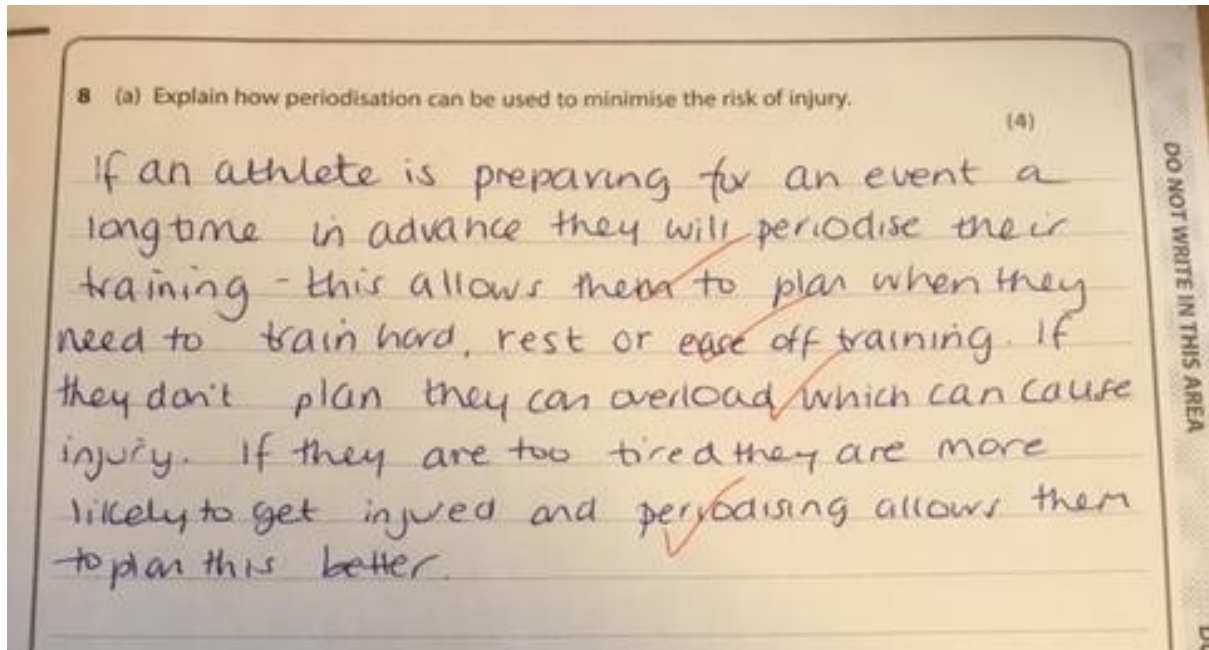 8 (a) Explain how periodisation can be used to minimise the risk of injury.
(4)
If an athlete is preparing for an event a
long time in advance they will periodise their
training - this allows them to plan when they
need to train hard, rest or ease off training. If
they don't plan they can overload which can cause
injury. If they are too tired they are more
likely to get injured and periodising allows them
to plan this better.
DO NOT WRITE IN THIS AREA